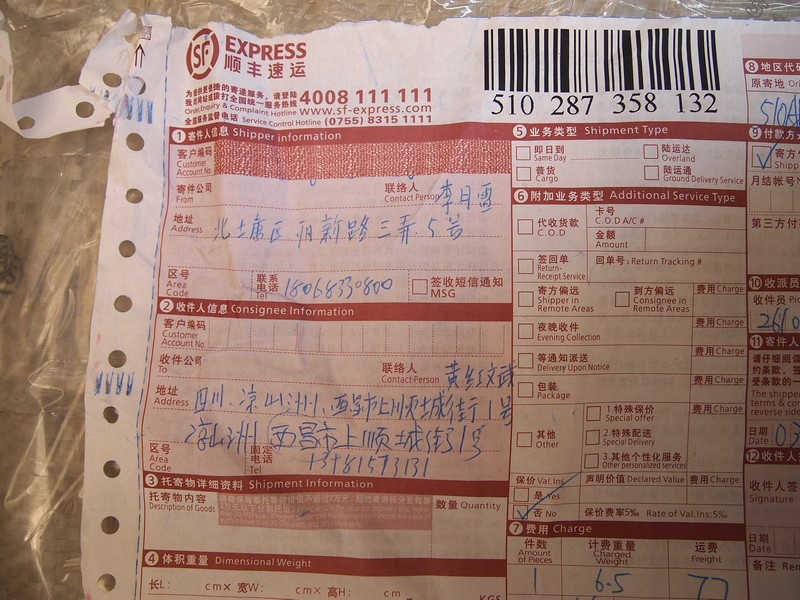 SF EXPRESS
顺丰速运
为提供更便捷的寄递服务，请登陆
我司网站或拨打全国统一服务热线 4008 111 111
Order,Inquiry & Complaint Hotline www.sf-express.com
全信服务监督电话 Service Control Hotline (0755) 8315 1111
510 287 358 132
1 寄件人信息 Shipper Information
客户编码
Customer Account No.
寄件公司
From
联络人
Contact Person
李月雪
地址
Address
区 路三弄5号
区号
Area Code
联系电话
Tel
18068330800
签收短信通知
MSG
2 收件人信息 Consignee Information
客户编码
Customer Account No.
收件公司
To
联络人
Contact Person
黄红
地址
Address
四川、凉山洲州、西昌市上顺城街1号
凉山洲 西昌市上顺城街1号
区号
Area Code
固定电话
Tel
13981593131
3 托寄物详细资料 Shipment Information
托寄物内容
Description of Goods
数量 Quantity
4 体积重量 Dimensional Weight
长L: cm× 宽W: cm× 高H: cm
KGS
5 业务类型 Shipment Type
即日到
Same Day
陆运达
Overland
普货
Cargo
陆运通
Ground Delivery Service
6 附加业务类型 Additional Service Type
代收货款
C.O.D
卡号
C.O.D A/C #
金额
Amount
签回单
Return-Receipt Service
回单号: Return Tracking #
寄方偏远
Shipper in Remote Areas
到方偏远
Consignee in Remote Areas
费用 Charge
夜晚收件
Evening Collection
费用 Charge
等通知派送
Delivery Upon Notice
费用 Charge
包装
Package
费用 Charge
其他
Other
1.特殊保价
Special offer
2.特殊配送
Special Delivery
3.其他个性化服务
Other personalized services
保价 Val.Ins
声明价值 Declared Value
费用 Charge
是 Yes
否 No
保价费率5‰ Rate of Val.Ins:5‰
7 费用 Charge
件数
Amount of Pieces
计费重量
Charged Weight
运费
Freight
1
6.5
77
8 地区代码
原寄地
9 付款方
寄方
月结帐号
第三方付
10 收派员
收件员
11 寄件人
请仔细阅
约条款。
受条款的
The shipper
terms & co
reverse side
日期
Date
12 收件人
收件人签
Signature
日期
Date
备注